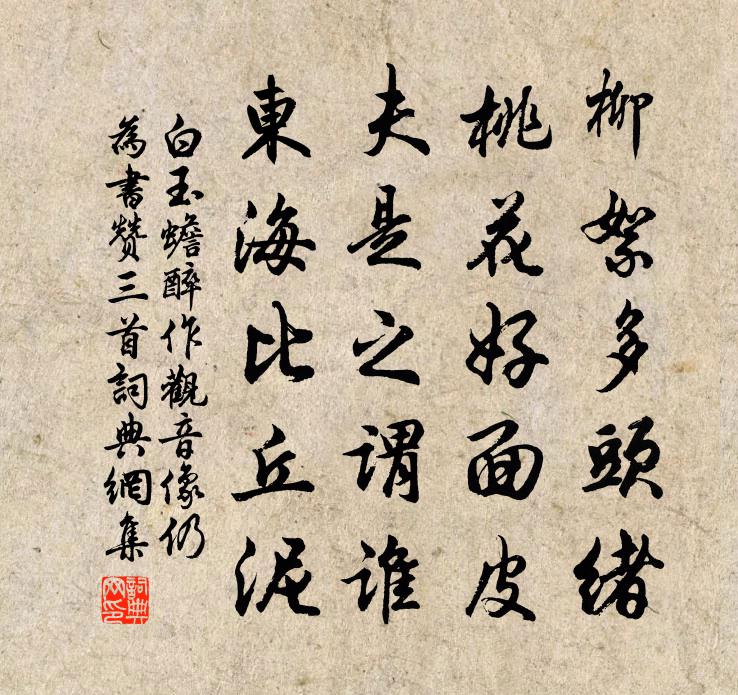 柳絮多頭緒
桃花好面皮
夫是之謂誰
東海比丘泥
白玉蟾醉作觀音像仍
為書贊三首詞典網集
詞典
网印